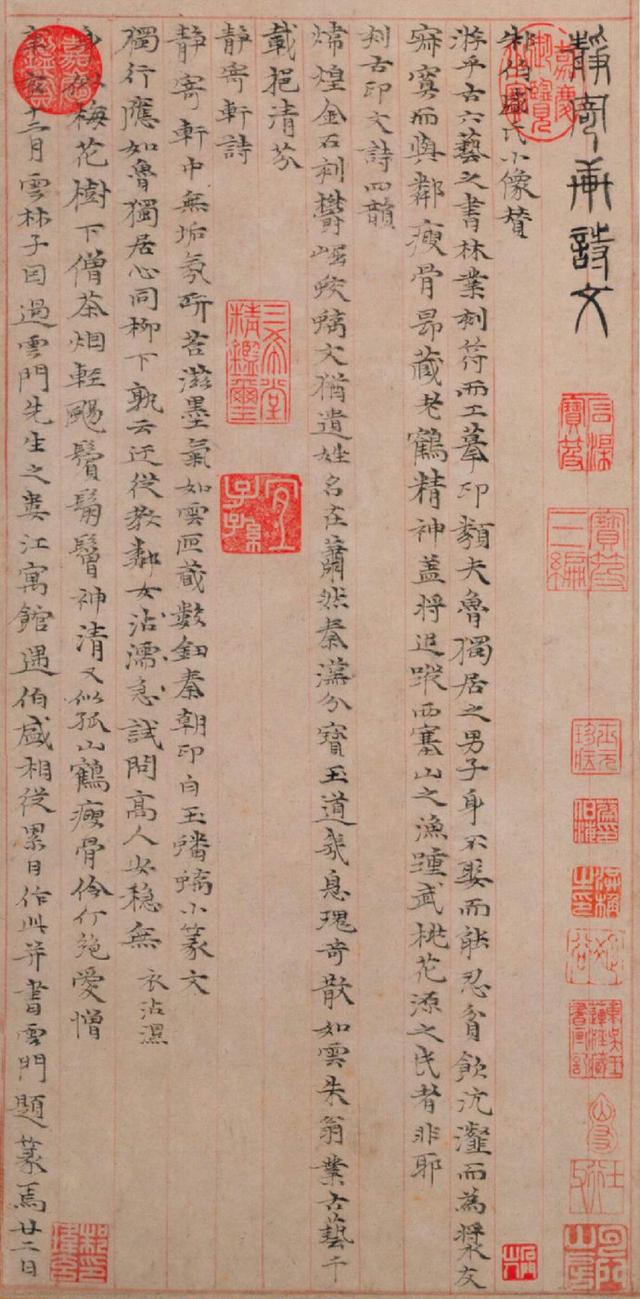 靜寄軒詩文
朱伯盛氏小像贊
游乎古六藝之書林業刻符而工摹印類夫魯獨居之男子身不娶而能忍貧飲沆瀣而為漿友
寂寞而與鄰瘦骨昂藏老鶴精神蓋將追蹤西塞山之漁踵武桃花源之民者非耶
刻古印文詩四韻
煒煌金石刻欝崛蛟螭文猶遺姓名在蕭然秦漢分寶玉道幾息瑰奇散如雲朱翁業古藝千
載挹清芬
靜寄軒詩
靜寄軒中無垢氛研苔滋墨氣如雲匣藏數鈕秦朝印白玉蟠螭小篆文
獨行應如魯獨居心同柳下孰云迂從教鄰女沾濡急試問高人安穩無 衣沾濕
身似梅花樹下僧茶烟輕颺鬢鬅鬙神清又似孤山鶴瘦骨伶仃絕愛憎
辛亥十二月雲林子因過雲門先生之婁江寓館遇伯盛相從累日作此并書雲門題篆焉廿二日
嘉慶御覽之寶
石渠寶笈
寶笈三編
三希堂精鑑璽
宜子孫
嘉慶鑑賞